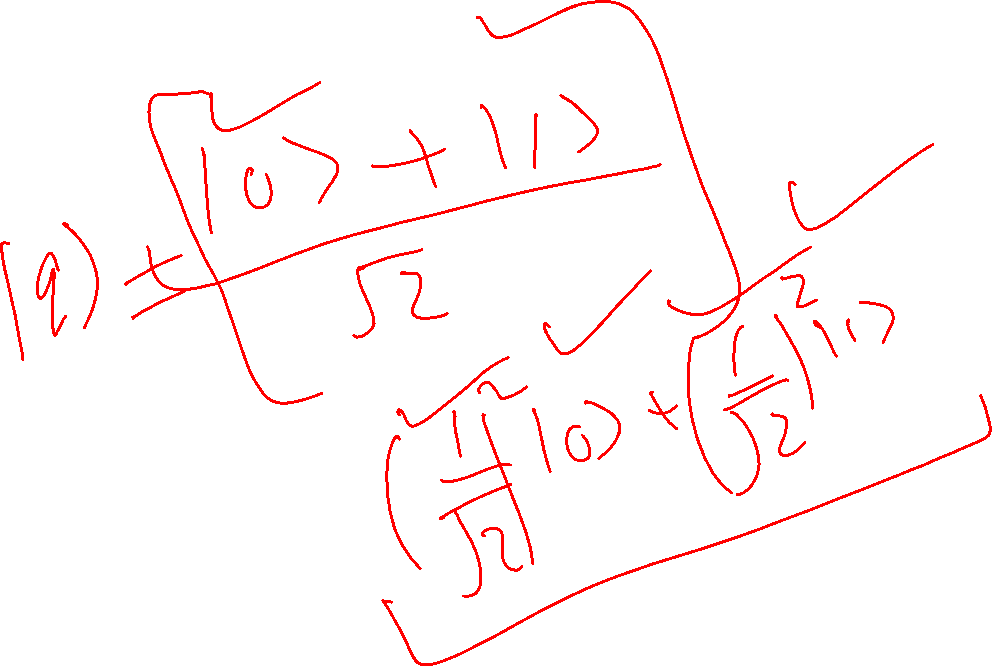 |q⟩ = |0⟩ + |1⟩
√2
(1/√2)²|0⟩ + (1/√2)²|1⟩